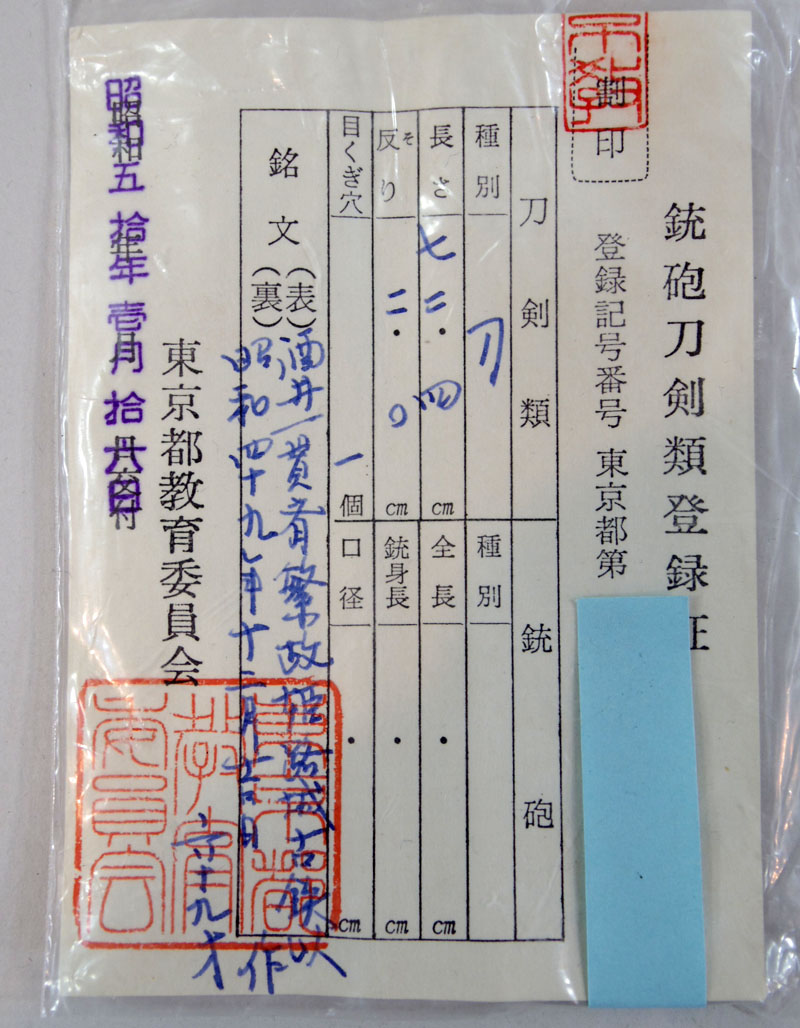 銃砲刀剣類登録証
割印
登録記号番号 東京都第
刀剣類
種別 刀
長さ 七二・四cm
反り そ 二・〇cm
目くぎ穴 一個
銃砲
種別
全長 ・ cm
銃身長 ・ cm
口径 ・ cm
銘文
(表)酒井一貫斎繁政姫路城古鉄以作
(裏)昭和四十九年十二月吉日
六十九才
東京都教育委員会
昭和五拾年壱月拾六日交付
東京都教育委員会